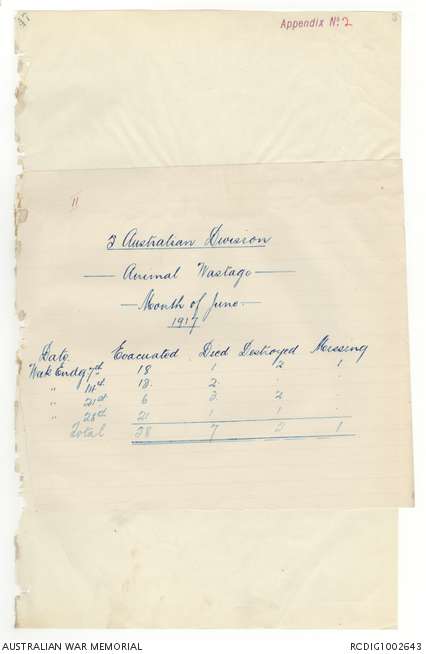 47
Appendix No. 2
11
3 Australian Division
— Animal Wastage —
— Month of June —
1917
Date Evacuated Died Destroyed Missing
Week Endg 7th 18 1 2 1
" 14th 13 2 . .
" 21st 6 3 2 .
" 28th 21 1 1 .
Total 58 7 5 1
AUSTRALIAN WAR MEMORIAL RCDIG1002643